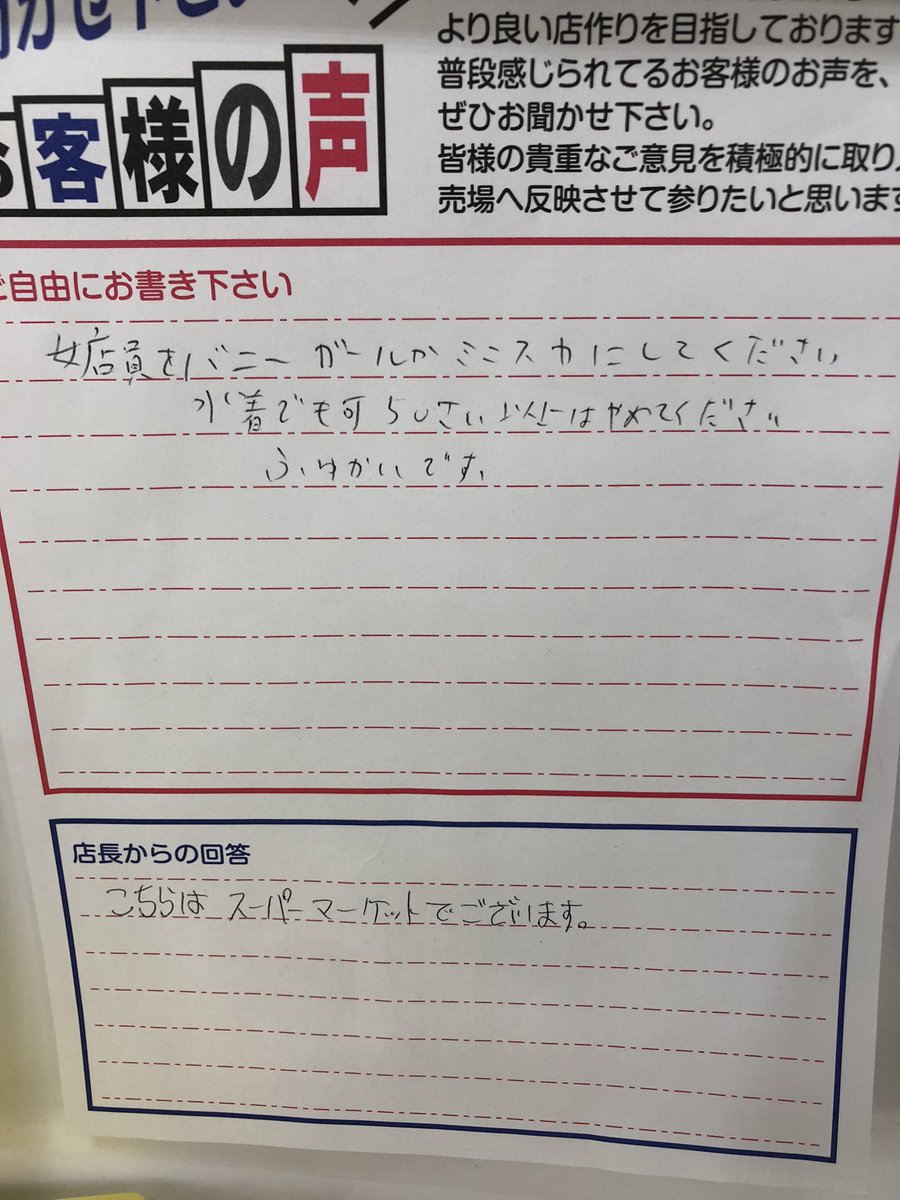 お客様の声
より良い店作りを目指しております
普段感じられてるお客様のお声を、
ぜひお聞かせ下さい。
皆様の貴重なご意見を積極的に取り
売場へ反映させて参りたいと思います
ご自由にお書き下さい
女店員をバニーガールかミニスカにしてください
水着でも可 うしさい 以上はやめてください
ふゆかいです
店長からの回答
こちらはスーパーマーケットでございます。